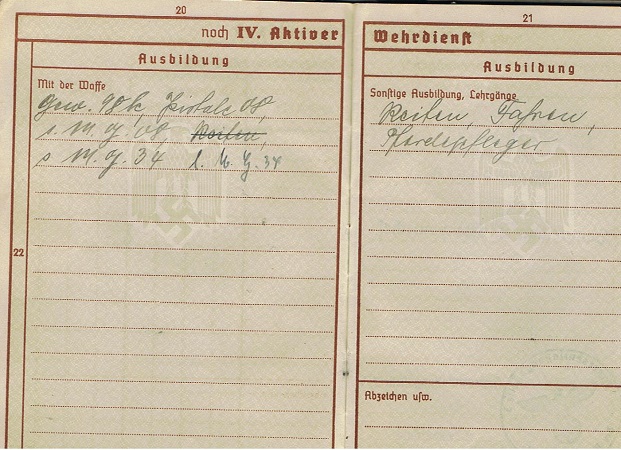 20
noch IV. Aktiver
Ausbildung
Mit der Waffe
Gew. 98k, Pistole 08,
s. M. G. 08 Reiten,
s M. G. 34 l. M. G. 34
22
21
Wehrdienst
Ausbildung
Sonstige Ausbildung, Lehrgänge
Reiten, Fahren,
Pferdepfleger
Abzeichen usw.